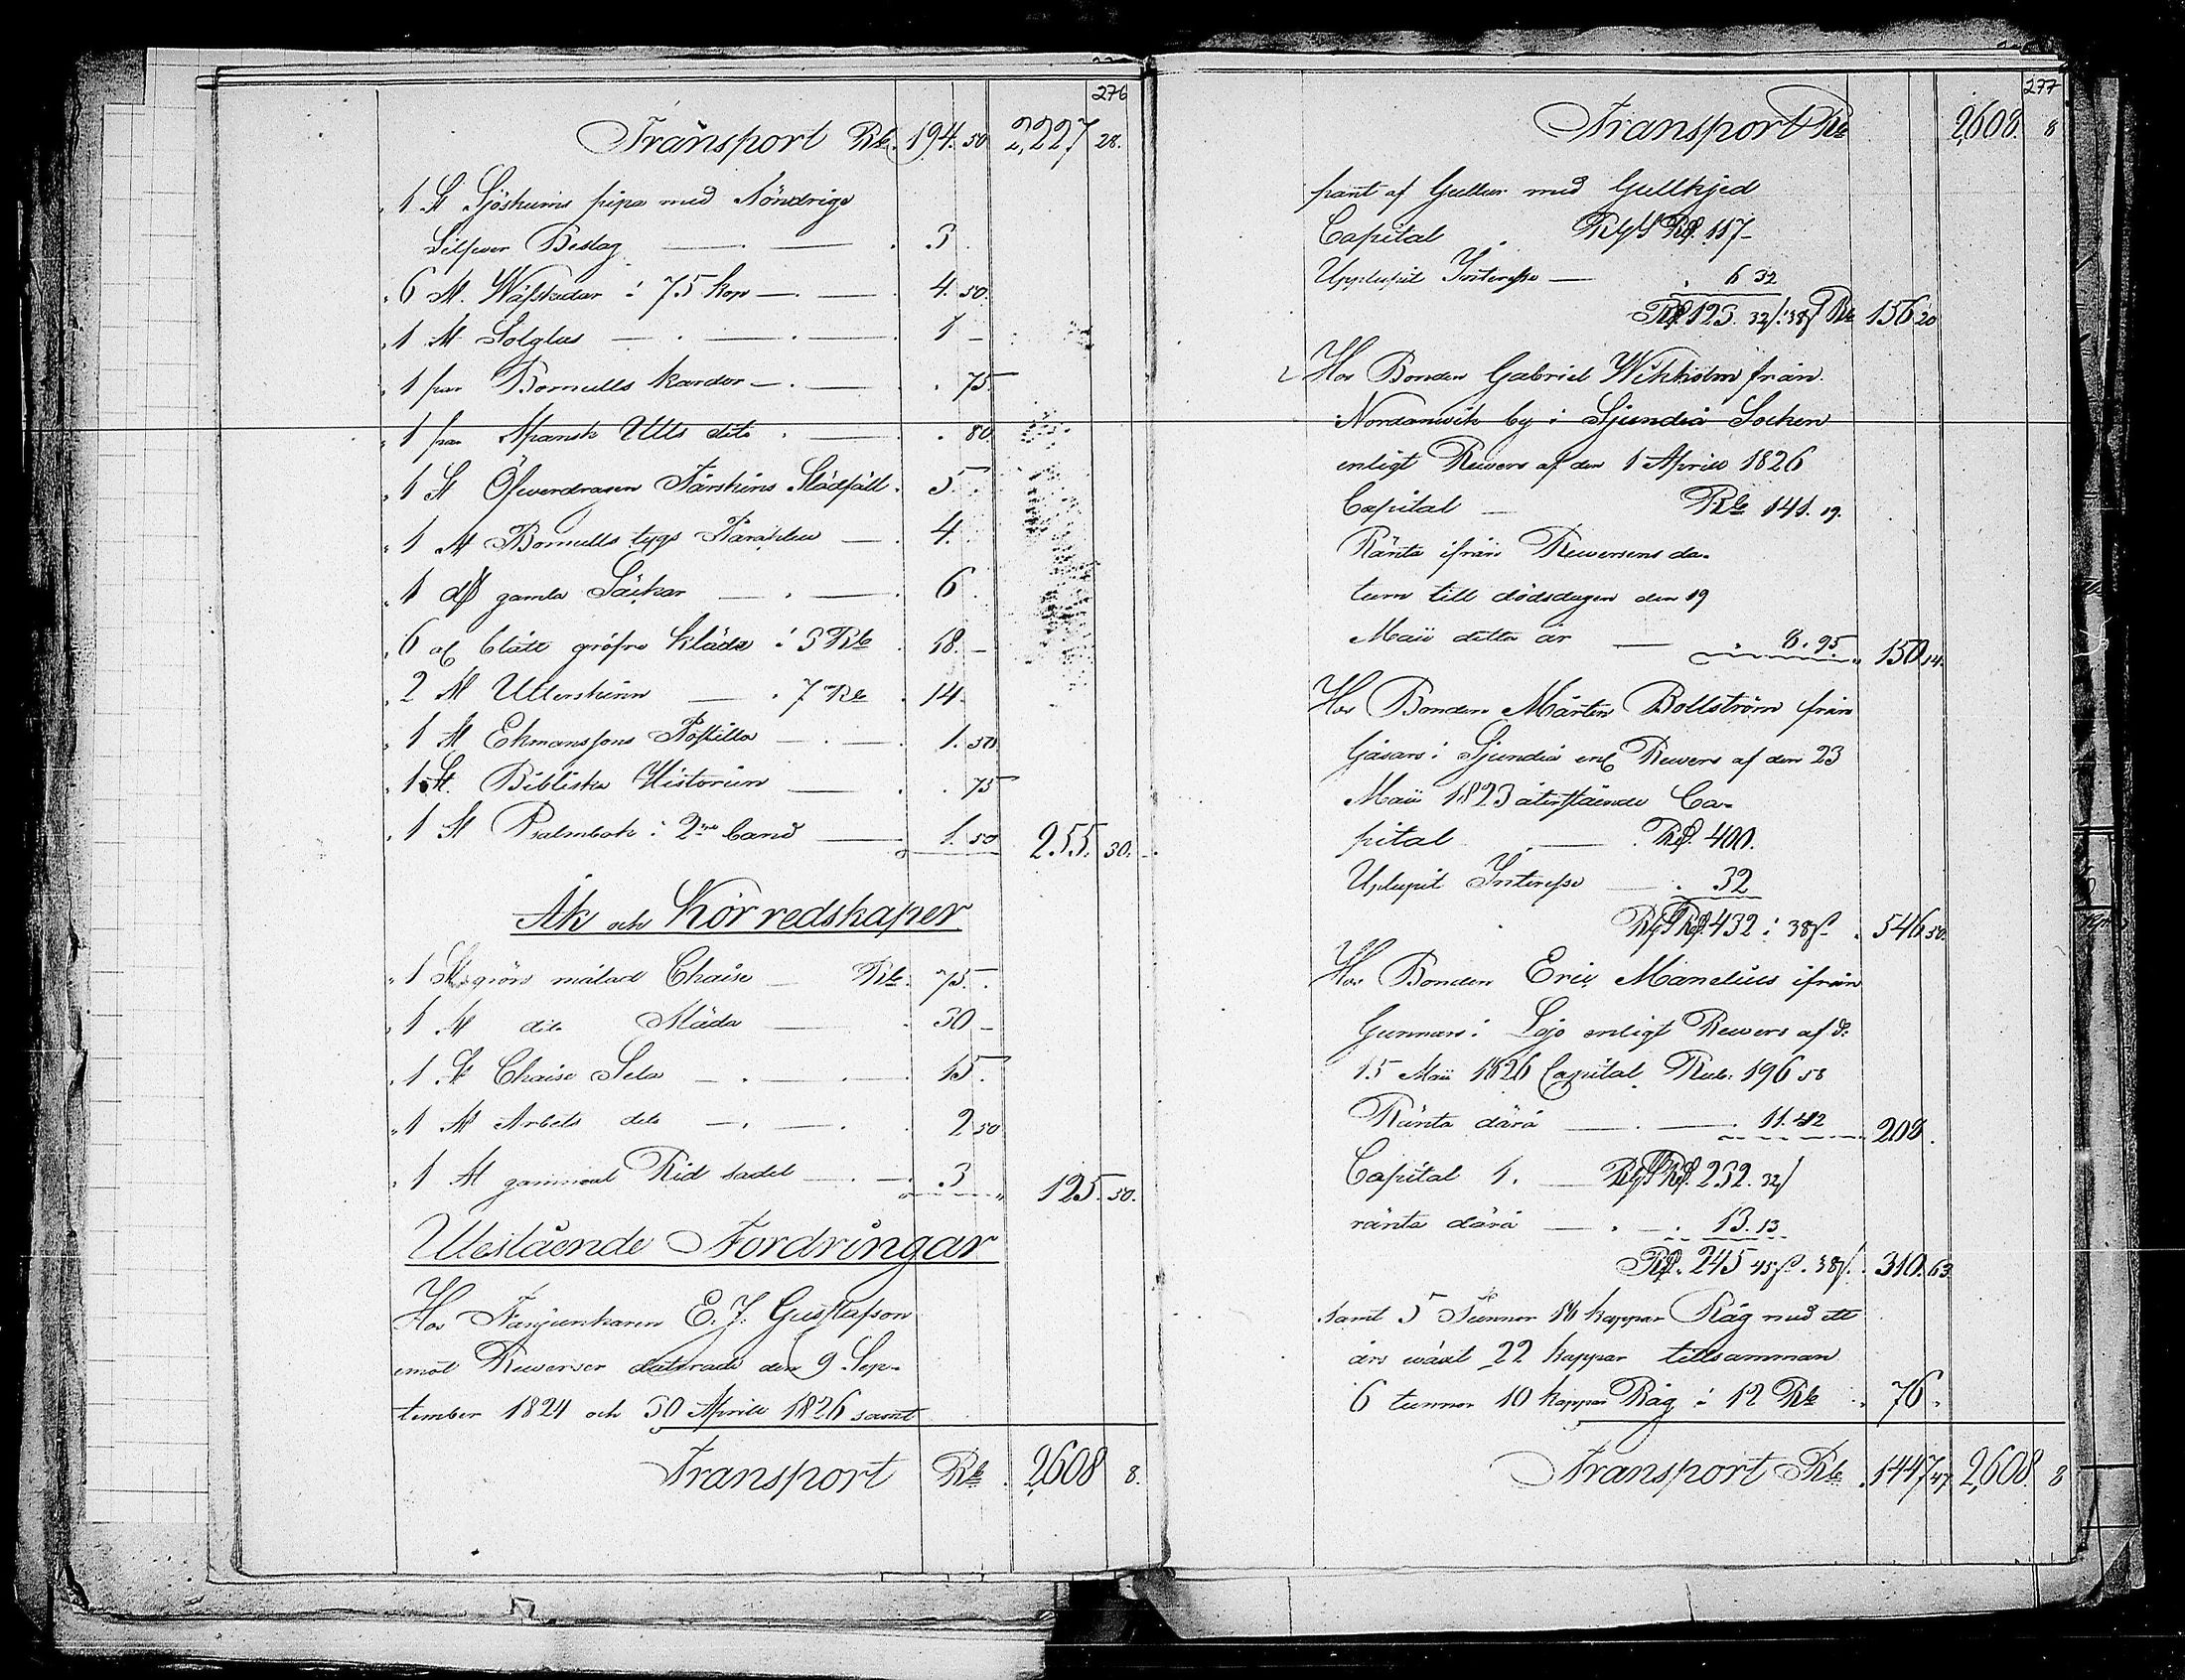 276
Transport Rbl. 194. 50 2,227 28.
1 St Sjöskums pipa med Söndrige
Silfver Beslag 3.
6 St. Wäfskedar i 75 kop 4. 50.
1 St Solglas 1
1 par Bomulls kardor 75
1 par Spansk Ulls dito 80
1 St Öfverdragen Fårskins Slädfäll 5.
1 St Bomulls tygs 4.
1 gamla Säckar 6
6 al blått gröfre kläde i 3 Rbl 18.
2 St Utterskinn 7 Rbl 14
1 St Ekmanssons Postilla 1. 50
1 St. Bibliska Historien 75
1 St Psalmbok i 2ne band 1. 50 255. 30.
Åk och Körredskaper
1 St grön målad Chaise Rbl. 75.
1 St dito Släda 30
1 St Chaise Sela 15.
1 St Arbets dito 2 50
1 St gammal Rid sadel 3 125. 50.
Utestående Fordringar
Hos Fanjunkaren E. J. Gustafson
emot Reverser daterade den 9 Sep-
tember 1824 och 30 Aprill 1826 samt
Transport Rbl 2,608 8.
277
Transport Rbl 2,608. 8
pant af Gullur med Gullkjed
Capital RgsRd. 117
Upplupit Interesse 6 32
Rd 123. 32 s. 38 s Rbl 156 20
Hos Bonden Gabriel Wikholm från
Nordanwik by i Sjundeå Socken
enligt Revers af den 1 Aprill 1826
Capital Rbl 141. 19.
Ränta ifrån Reversens da-
tum till dödsdagen den 19
Maii detta år 8. 95. 150 14.
Hos Bonden Mårten Bollström från
Gåsars i Sjundeå enl Revers af den 23
Maii 1823 återstående Ca-
pital Rd. 400.
Uplupit Interesse 32
RgsRd. 432 i 38 s 546 50.
Hos Bonden Eric Manelius ifrån
Gunnars i Lojo enligt Revers af d.
15 Maii 1826 Capital Rub. 196 58
Ränta därå 11. 42 208.
Capital 1. RgsRd. 232. 32 s
ränta därå 13. 13
Rd. 245 45 s. 38 s. 310. 63
samt 5 Tunnor 18 kappar Råg med ett
års wäxt 22 kappar tillsamman
6 tunnor 10 kappar Råg i 12 Rbl 76.
Transport Rbl. 1447 47. 2,608. 8